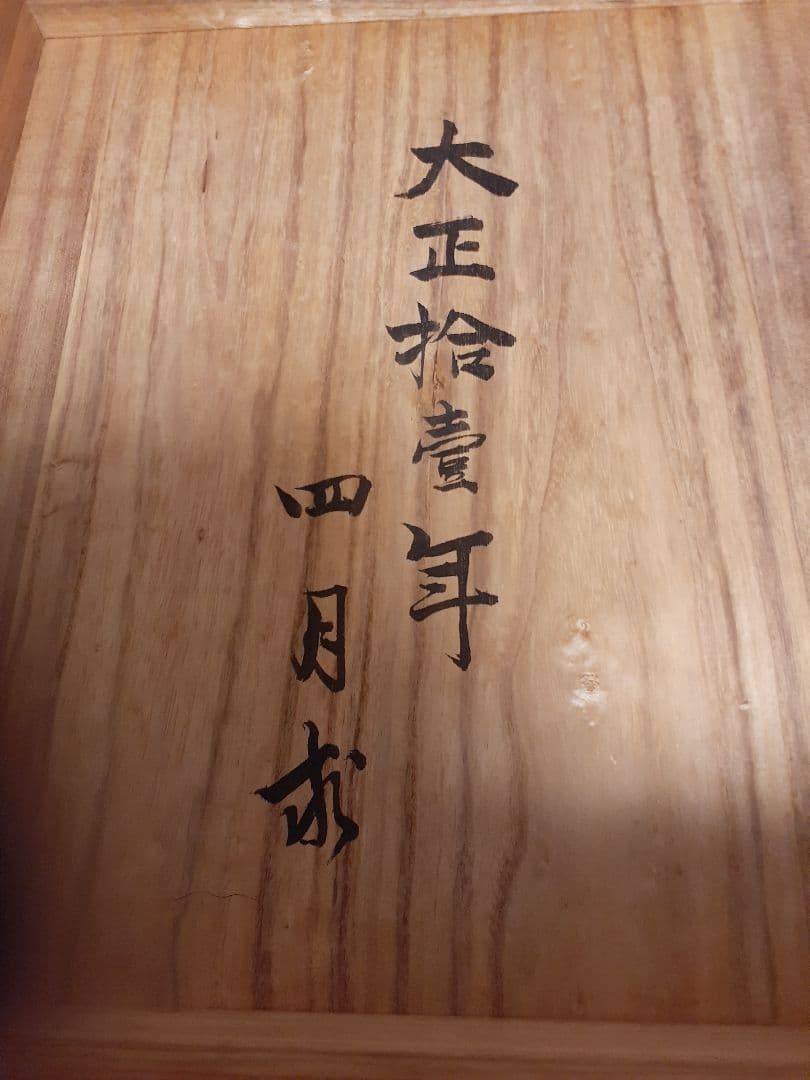 大正拾壹年
四月求